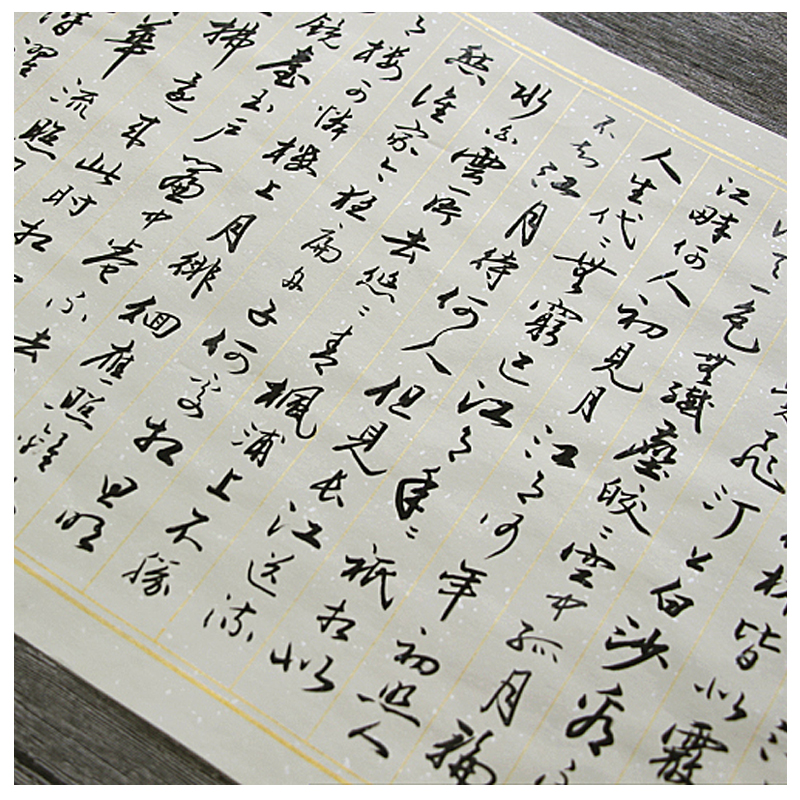 林皆似霰
飛汀上白沙看不
一色無纖塵皎〻空中孤月輪
江畔何人初見月江月何年初照人
人生代〻無窮已江月年〻祇相似
不知江月待何人但見長江送流
水白雲一片去悠〻青楓浦上不勝
愁誰家今夜扁舟子何處相思明
樓可憐樓上月徘徊應照離
鏡臺玉戶簾中卷不去
拂還來此時相
華流照